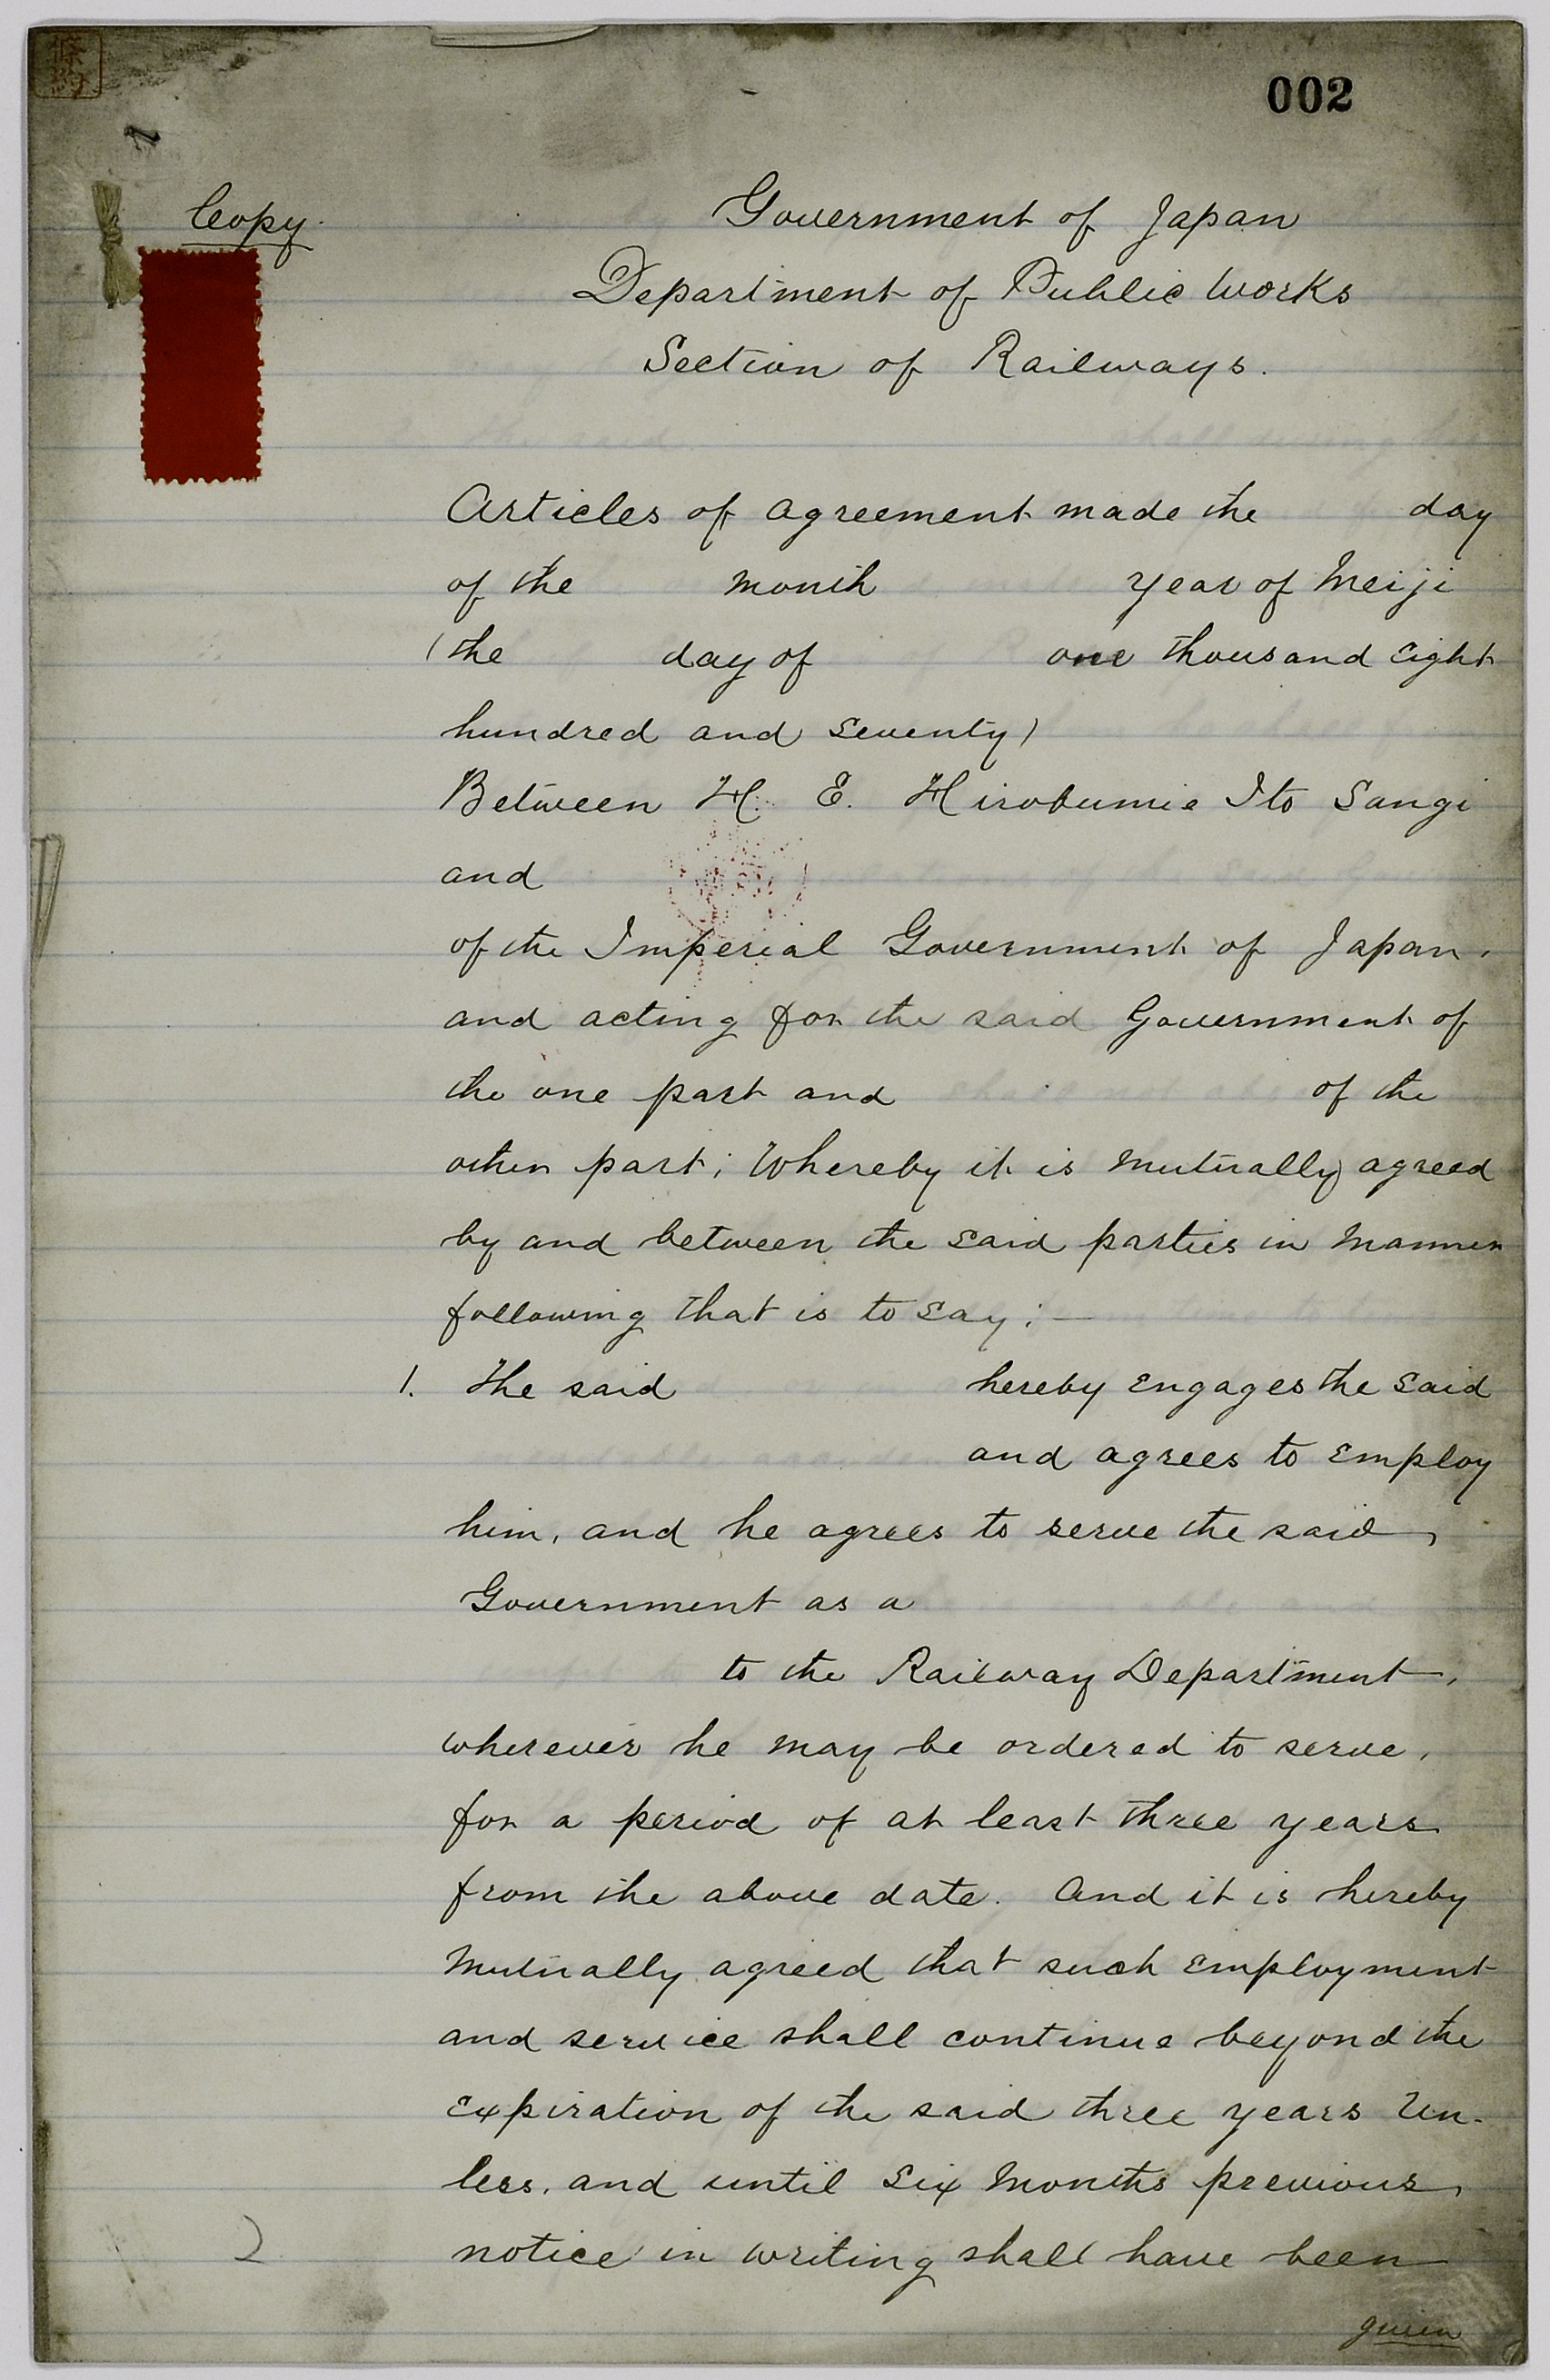 002
Copy.
Government of Japan
Department of Public Works
Section of Railways.
Articles of agreement made the day
of the month year of Meiji
(the day of one thousand eight
hundred and seventy)
Between H. E. Hirobumie Ito Sangi
and
of the Imperial Government of Japan,
and acting for the said Government of
the one part and of the
other part; Whereby it is mutually agreed
by and between the said parties in manner
following that is to say;—
1. The said hereby engages the said
and agrees to employ
him, and he agrees to serve the said,
Government as a
to the Railway Department,
wherever he may be ordered to serve,
for a period of at least three years
from the above date. And it is hereby
mutually agreed that such employment
and service shall continue beyond the
expiration of the said three years un-
less, and until six months previous,
notice in writing shall have been
given
2